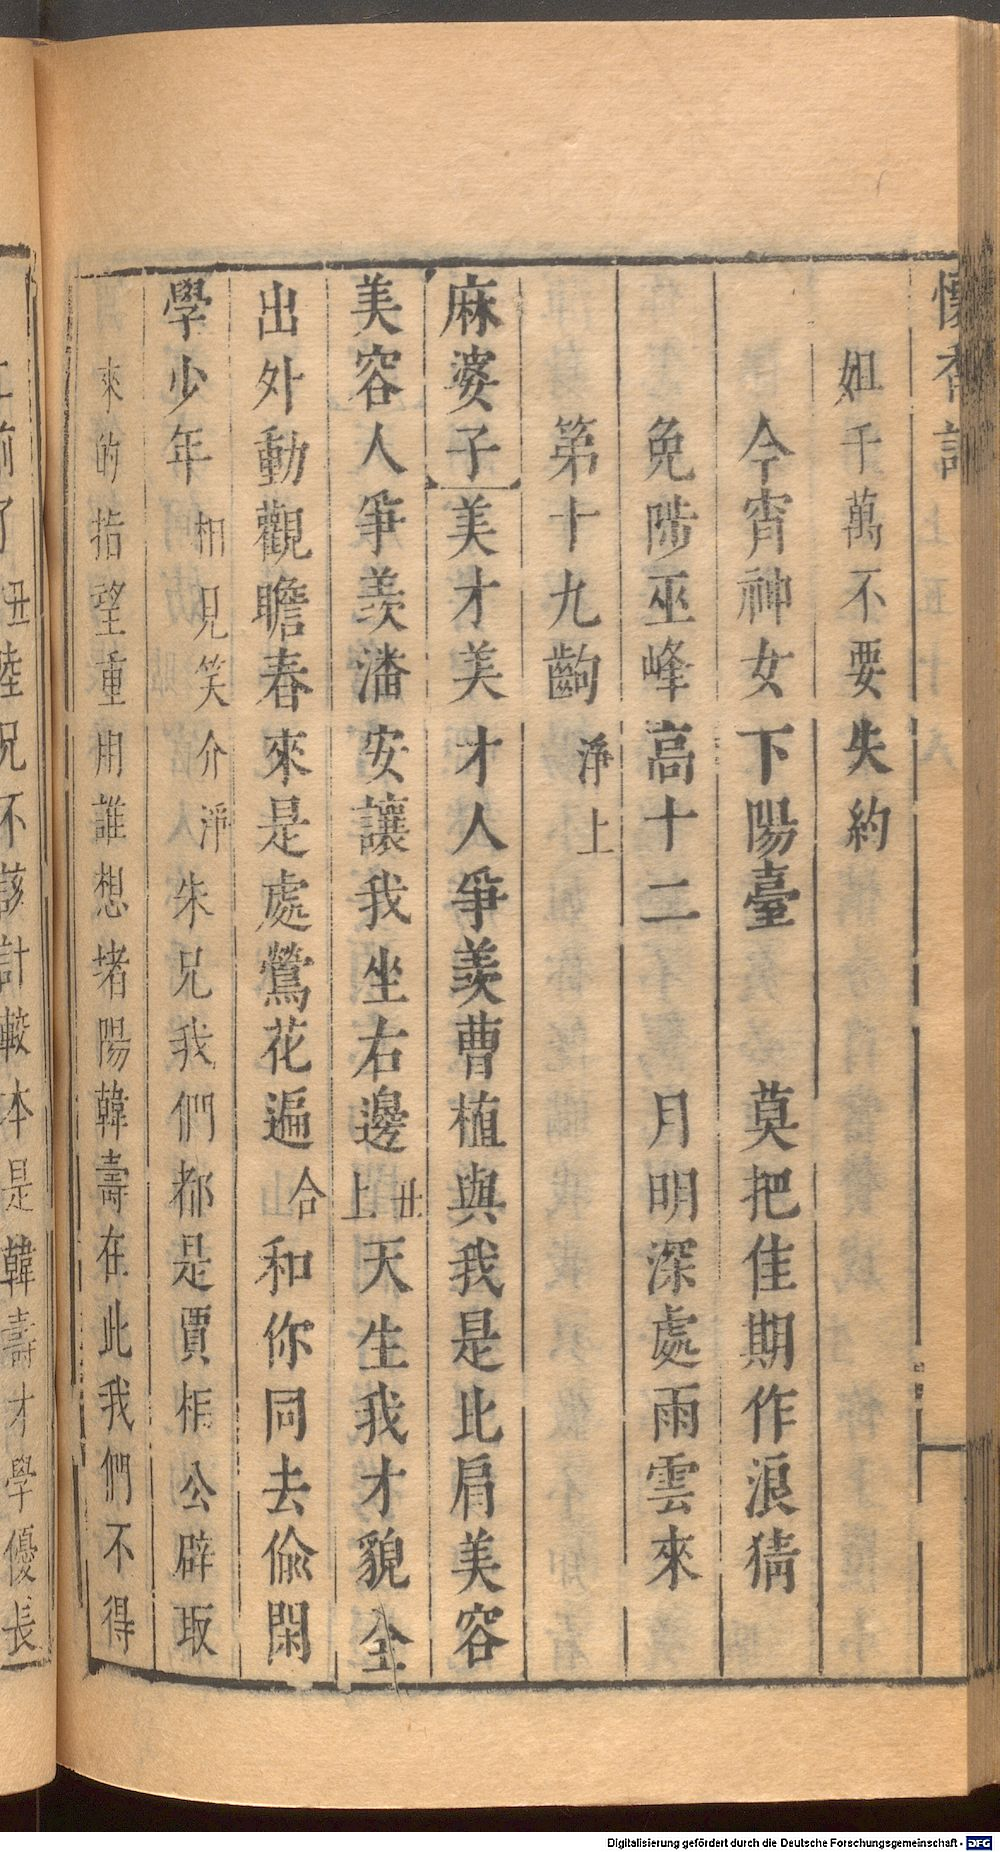 懷香記
姐千萬不要失約
今宵神女下陽臺　莫把佳期作浪猜
免陟巫峰高十二　月明深處雨雲來
第十九齣　淨上
麻婆子美才美才人爭羨曹植與我是比肩美容
美容人爭羨潘安讓我坐右邊丑上天生我才貌全
出外動觀瞻春來是處鶯花遍合和你同去偷閑
學少年相見笑介淨朱兄我們都是賈相公辟取
來的指望重用誰想堵陽韓壽在此我們不得
前了丑陸兄不該計較本是韓壽才學優長
Digitalisierung gefördert durch die Deutsche Forschungsgemeinschaft - DFG